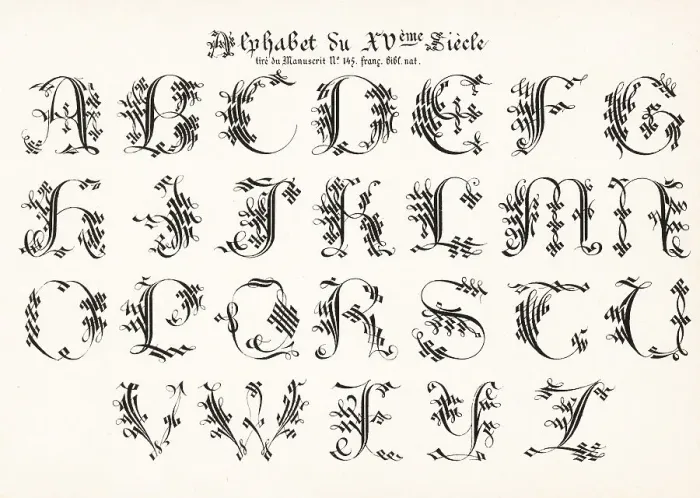 Alphabet du XVème Siècle
tiré du Manuscrit No. 145. franç. Bibl. nat.
A B C D E F G
H I J K L M N
O P Q R S T U
V W X Y Z